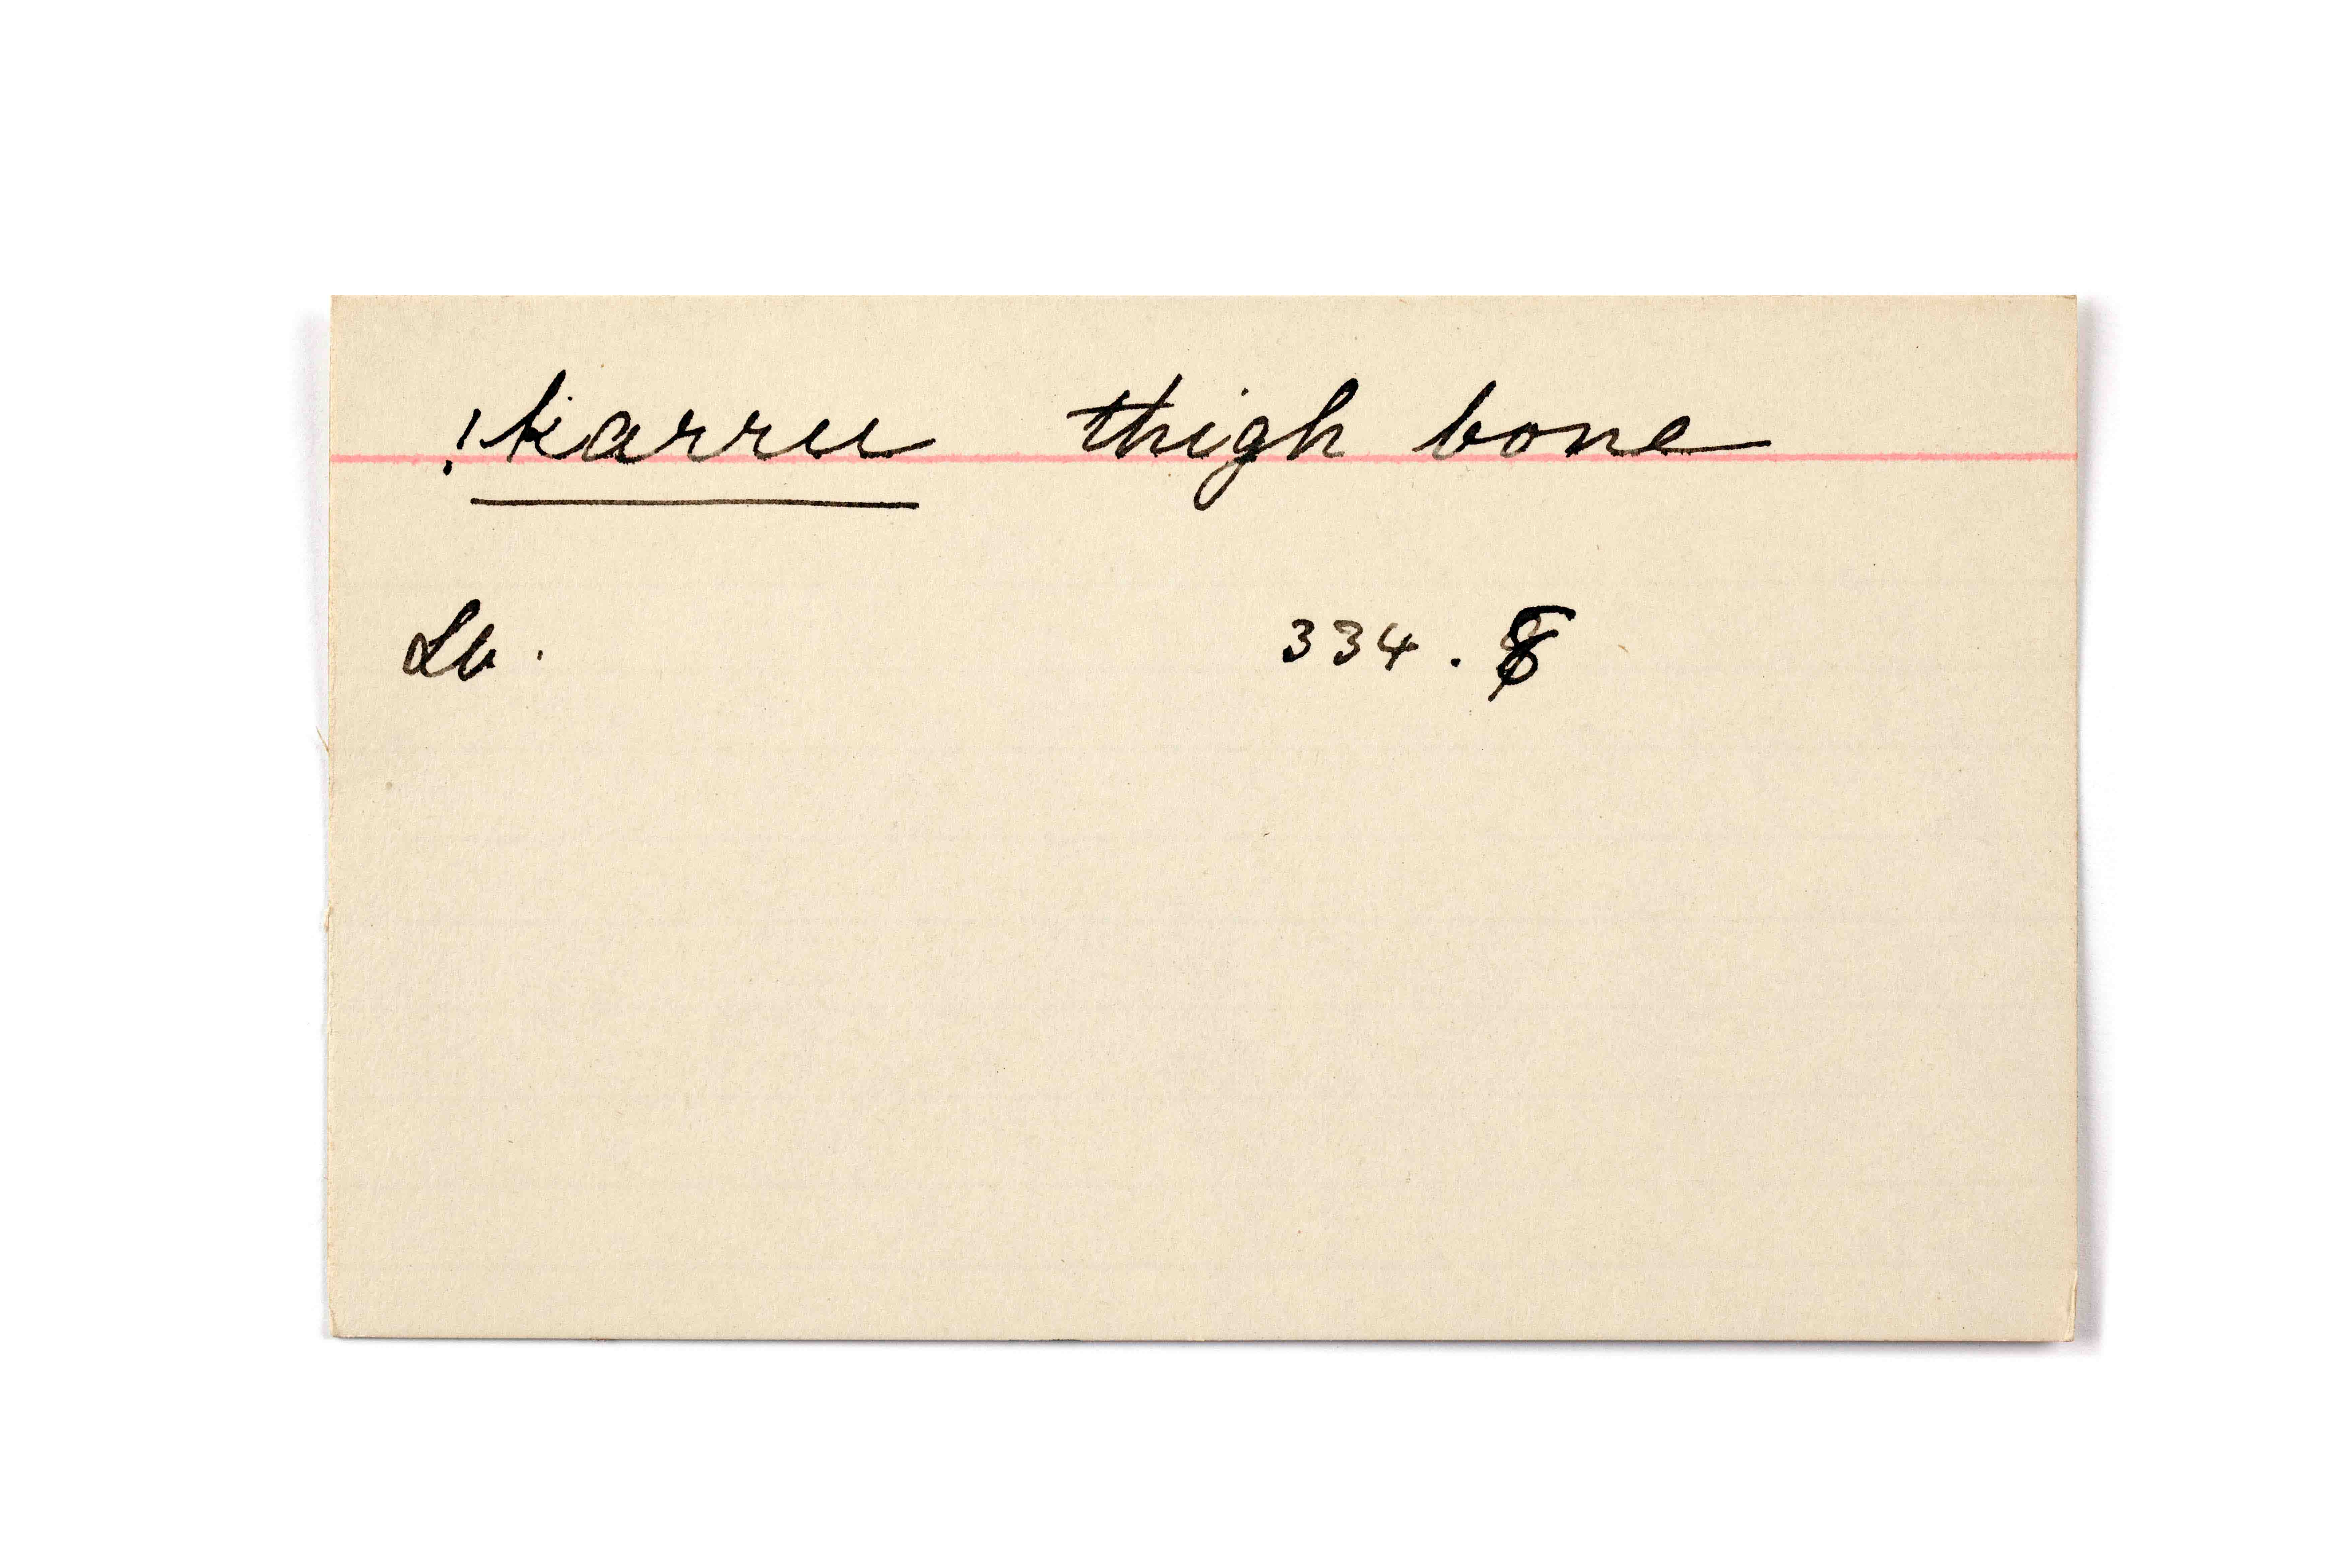 !karru thigh bone
Lb. 334.